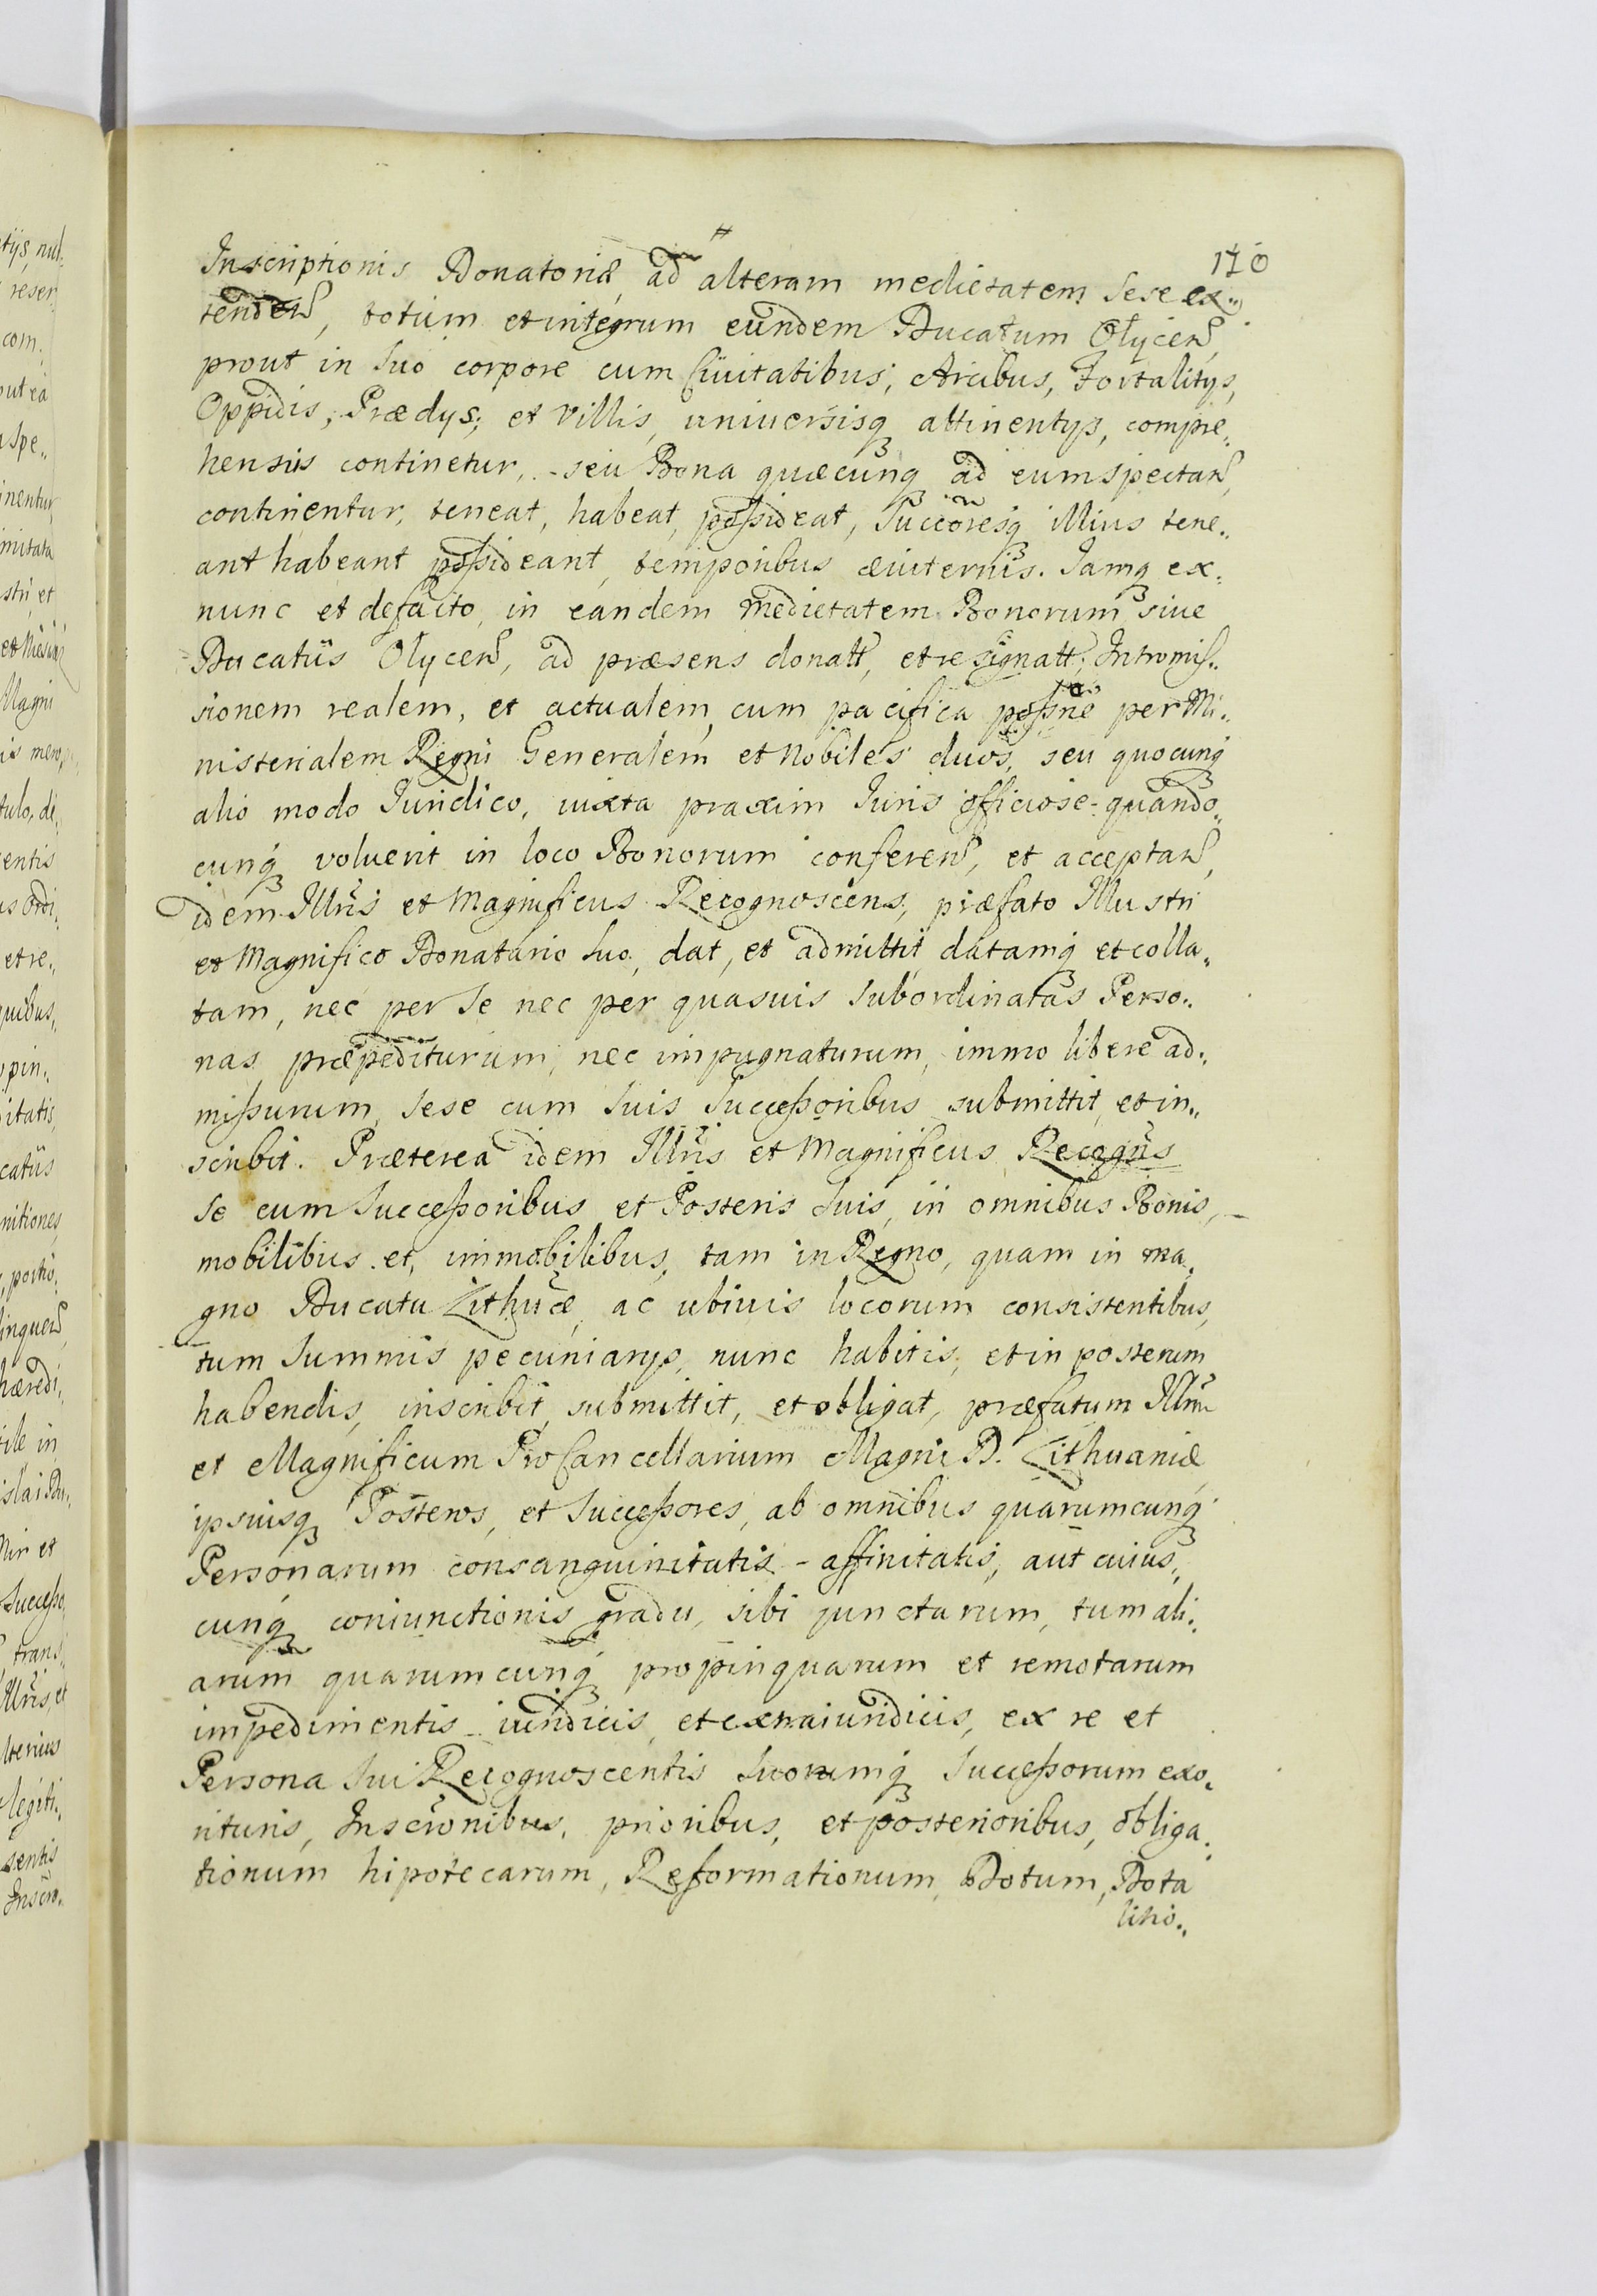 170
Inscriptionis Donatoriæ, ad alteram medietatem sese ex„
tendeñ, totum et integrum eundem Ducatum Olyceñ,
prout in suo corpore cum Ciuitatibus, Arcibus, Fortalitys,
Oppidis, Prædys, et Villis, uniuersisq attinentys, compre„
hensus continetur, - seu Bona quæcunq ad eum spectañ,
continentur, teneat, habeat, possideat, Succõresq illius tene„
ant habeant possideant, temporibus æuiternis. Iamq ex„
nunc et defacto, in eandem medietatem Bonorum siue
Ducatus Olyceñ, ad præsens donatt, et resignatt, Intromis„
sionem realem, et actualem, cum pacifica possñe per Mi„
nisterialem Regni Generalem et Nobiles duos, seu quocunq
alio modo Iuridico, iuxta praxim Iuris officiose - quando„
cunq voluerit in loco Bonorum confereñ, et acceptañ,
idem Illr̃is et Magnificus Recognoscens, præfato Illustri
et Magnifico Donatario suo, dat, et admittit datamq et colla„
tam, nec per se nec per quasuis subordinatas Perso„
nas præpediturum, nec impugnaturum, immo libere ad„
missurum, sese cum suis Successoribus submittit, et in„
scribit. Præterea idem Illr̃is et Magnificus Recogñs
se cum Successoribus et Posteris suis, in omnibus Bonis,
mobilibus et, immobilibus, tam in Regno, quam in ma„
gno Ducatu Lithuæ, ac ubiuis locorum consistentibus,
tum Summis pecuniarys, nunc habitis, et in posterum
habendis, inscribit, submittit, et obligat, præfatum Illr̃m
et Magnificum ProCancellarium Magni D. Lithuaniæ
ipsiusq Posteros, et Successores, ab omnibus quarumcunq
Personarum consanguinitatis - affinitatis, aut cuius„
cunq coniunctionis gradu, sibi junctarum, tum ali„
arum quarumcunq propinquarum et remotarum
impedimentis iuridicis, et extraiuridicis, ex re et
Persona sui Recognoscentis suorumq Successorum exo„
rituris, Inscrõnibus, prioribus, et posterioribus, obliga„
tionum hipotecarum, Reformationum, Dotum, Dota
litio„